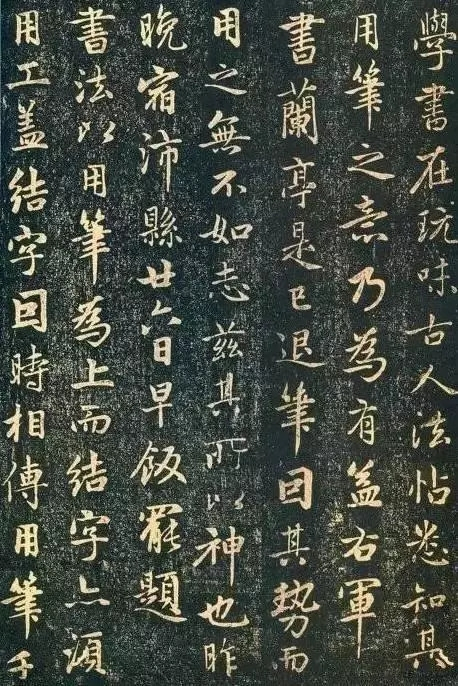 學書在玩味古人法帖悉知其
用筆之意乃為有益右軍
書蘭亭是已退筆因其勢而
用之無不如志茲其所以神也昨
晚宿沛縣廿六日早飯罷題
書法以用筆為上而結字亦須
用工蓋結字因時相傳用筆千